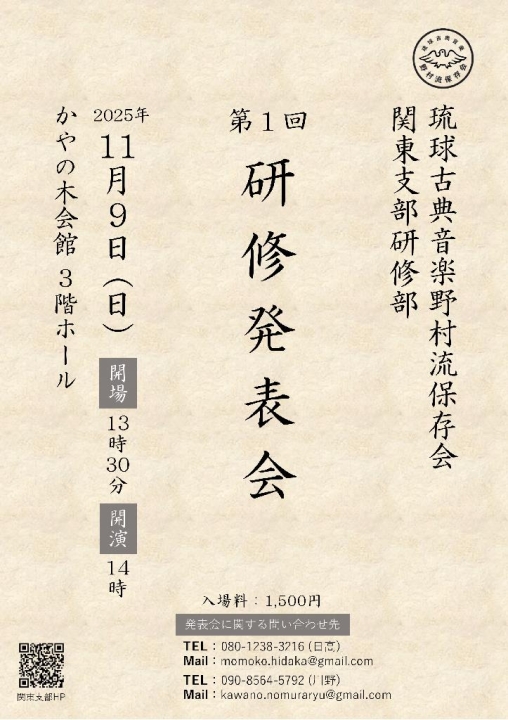 琉球古典音楽
野村流保存会
琉球古典音楽野村流保存会
関東支部研修部
第1回
研修発表会
2025年
11月9日(日)
開場
13時30分
開演
14時
かやの木会館 3階ホール
入場料:1,500円
発表会に関する問い合わせ先
TEL:080-1238-3216(日高)
Mail:momoko.hidaka@gmail.com
TEL:090-8564-5792(川野)
Mail:kawano.nomuraryu@gmail.com
関東支部HP